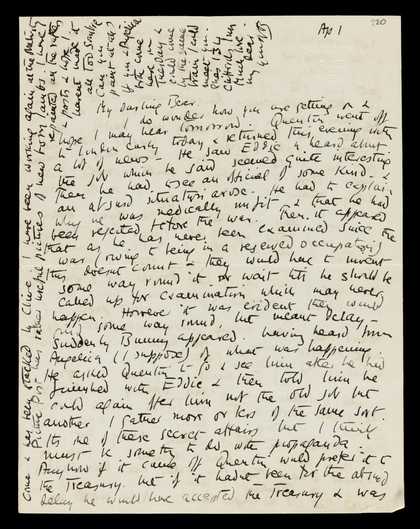 Ap 1
My darling Bear.
I do wonder how you are getting on &
hope I may hear tomorrow. Quentin went off
to London early today & returned this evening with
a lot of news - He saw Eddie & heard about
the job which he said seemed quite interesting
Then he had to see an official of some kind &
an absurd situation arose. He had to explain
why he was medically unfit & that he had
been rejected before the war. Then it appeared
that as he has never been examined since the
was (owing to being in a reserved occupation)
this doesn't count & they would have to invent
some way round it or wait till he should be
called up for examination which may never
happen. However it was evident they would
find some way round, but meant delay -
Suddenly Bunny appeared. having heard from
Angelica (I suppose) of what was happening.
He asked Quentin to go & see him after he had
finished with Eddie & then told him he
could again offer him not the old job but
another I gather more or less of the same sort.
Its one of these secret affairs but I think
must be something to do with propaganda.
Anyhow if it came off Quentin would prefer it to
the Treasury. but if it hadn't been for the absurd
delay he would have accepted the Treasury & was
come & has been attached to Clive. I have been working again at the
Picture Post has rather awful pictures of new
& posts & hope I
haven't made it
all too sombre
Can you
If you & Angelica
could come
have on
Tuesday &
could come
by the same
train I could
meet you.
Much love
my dear
your VB
220